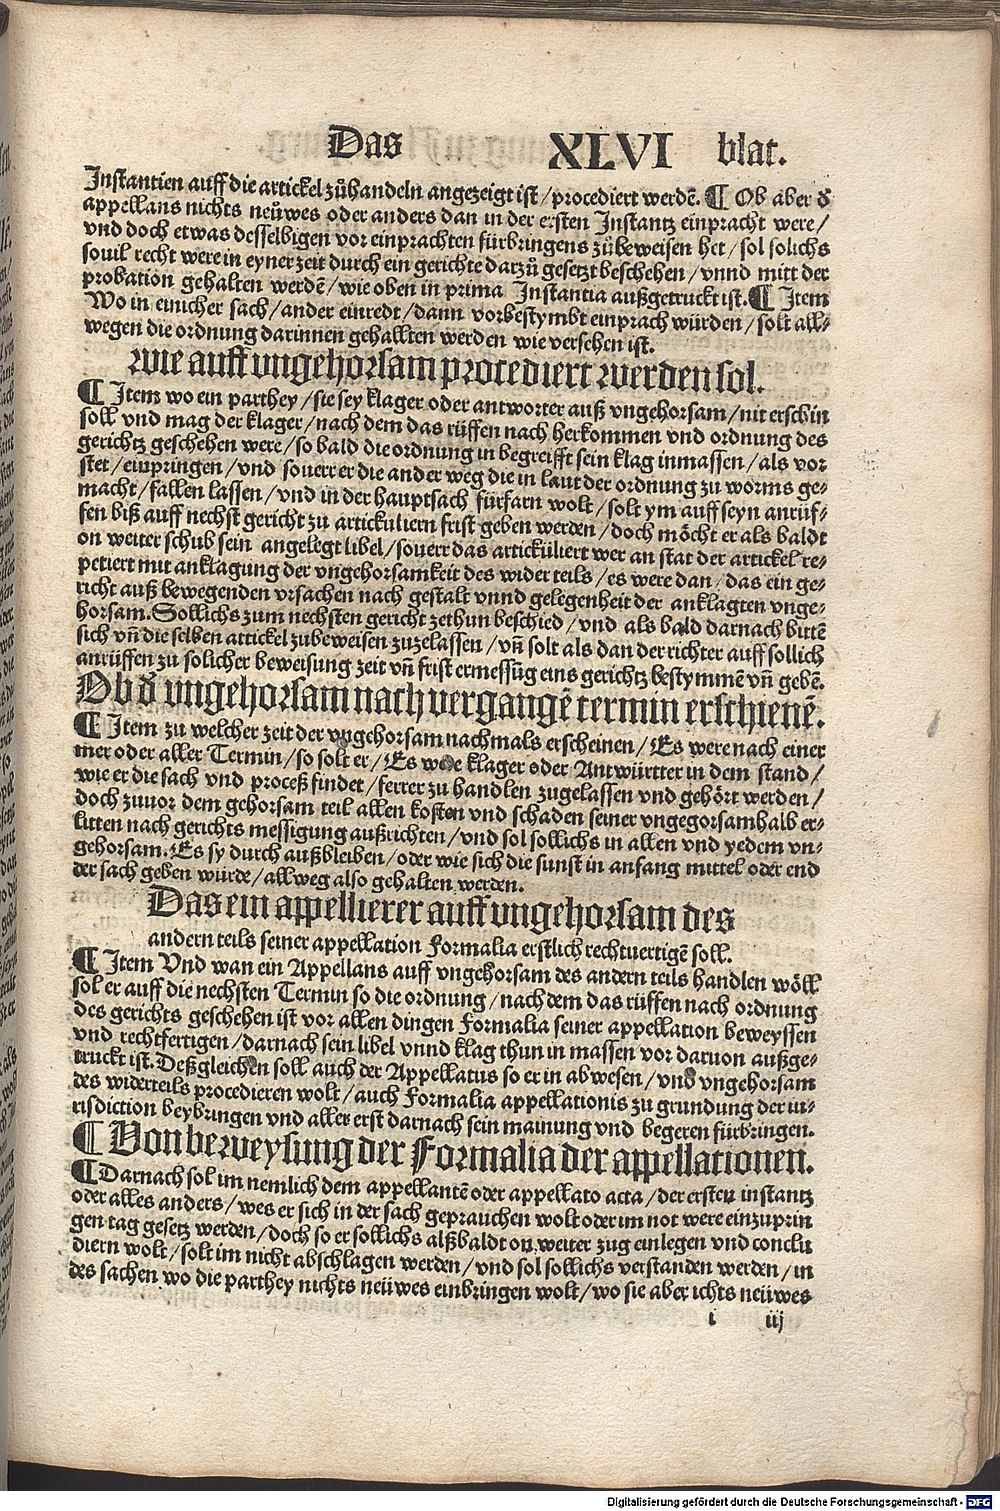 Das XLVI blat.
Instantien auff die artickel zůhandeln angezeigt ist / procediert werdẽ. ¶ Ob aber d̕
appellans nichts neüwes oder anders dan in der ersten Instantz einpracht were /
vnd doch etwas desselbigen vor einprachten fürbringens zůbeweisen het / sol solichs
souil recht were in eyner zeit durch ein gerichte darzů gesetzt beschehen / vnnd mitt der
probation gehalten werdẽ / wie oben in prima Instantia außgetruckt ist. ¶ Item
Wo in einicher sach / ander einredt / dann vorbestymbt einprach würden / solt all⸗
wegen die ordnung darinnen gehallten werden wie versehen ist.
wie auff vngehorsam procediert werden sol.
¶ Item wo ein parthey / sie sey klager oder antworter auß vngehorsam / nit erschin
soll vnd mag der klager / nach dem das rüffen nach herkommen vnd ordnung des
gerichtz geschehen were / so bald die ordnung in begreifft sein klag inmassen / als vor
stet / einpringen / vnd souerr er die ander weg die in laut der ordnung zu worms ge⸗
macht / fallen lassen / vnd in der hauptsach fürfarn wolt / solt ym auff seyn anrüf⸗
fen biß auff nechst gericht zu artickuliern frist geben werden / doch möcht er als baldt
on weiter schub sein angelegt libel / souerr das artickuliert wer an stat der artickel re⸗
petiert mit anklagung der vngehorsamkeit des wider teils / es were dan / das ein ge⸗
richt auß bewegenden vrsachen nach gestalt vnnd gelegenheit der anklagten vnge⸗
horsam. Sollichs zum nechsten gericht zethun beschied / vnd als bald darnach bittẽ
sich vñ die selben artickel zubeweisen zuzelassen / vñ solt als dan der richter auff sollich
anrüffen zu solicher beweisung zeit vñ frist ermessũg eins gerichtz bestymmẽ vñ gebẽ.
Ob d̕ vngehorsam nach vergangẽ termin erschienẽ.
¶ Item zu welcher zeit der vngehorsam nachmals erscheinen / Es were nach einer
mer oder aller Termin / so solt er / Es were klager oder Antwürtter in dem stand /
wie er die sach vnd proceß findet / ferrer zu handlen zugelassen vnd gehört werden /
doch zuuor dem gehorsam teil allen kosten vnd schaden seiner vngegorsamhalb er⸗
litten nach gerichts messigung außrichten / vnd sol sollichs in allen vnd yedem vn⸗
gehorsam. Es sy durch außbleiben / oder wie sich die sunst in anfang mittel oder end
der sach geben würde / allweg also gehalten werden.
Das ein appellierer auff vngehorsam des
andern teils seiner appellation Formalia erstlich rechtuertigẽ soll.
¶ Item Vnd wan ein Appellans auff vngehorsam des andern teils handlen wöll
sol er auff die nechsten Termin so die ordnung / nach dem das rüffen nach ordnung
des gerichts geschehen ist vor allen dingen Formalia seiner appellation beweyssen
vnd rechtfertigen / darnach sein libel vnnd klag thun in massen vor daruon außge⸗
truckt ist. Deßgleichen soll auch der Appellatus so er in abwesen / vnd vngehorsam
des widerteils procedieren wolt / auch Formalia appellationis zu grundung der iu⸗
risdiction beybringen vnd aller erst darnach sein mainung vnd begeren fürbringen.
¶ Von beweysung der Formalia der appellationen.
¶ Darnach sol im nemlich dem appellantẽ oder appellato acta / der ersten instantz
oder alles anders / wes er sich in der sach geprauchen wolt oder im not were einzuprin
gen tag gesetz werden / doch so er sollichs alßbaldt on weiter zug einlegen vnd conclu
diern wolt / solt im nicht abschlagen werden / vnd sol sollichs verstanden werden / in
des sachen wo die parthey nichts neüwes einbringen wolt / wo sie aber ichts neüwes
i iij
Digitalisierung gefördert durch die Deutsche Forschungsgemeinschaft - DFG